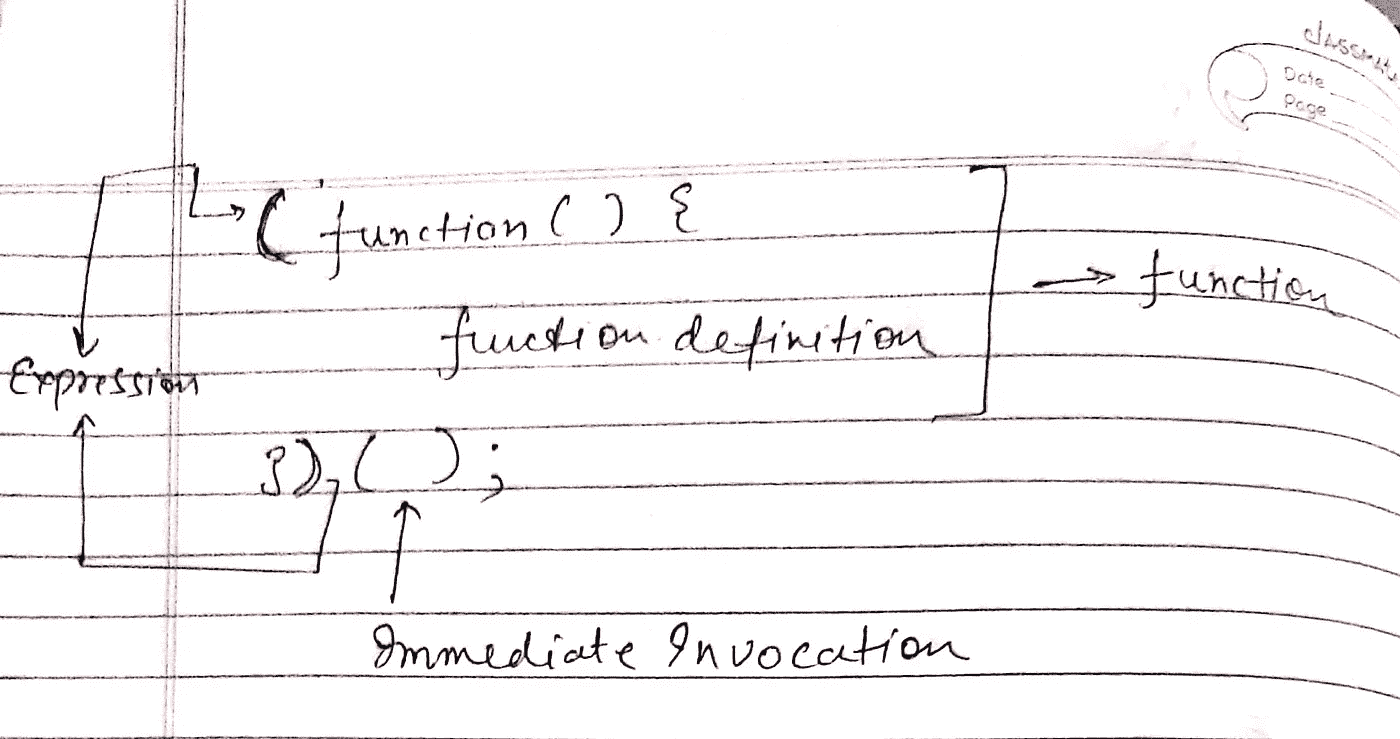 classmate
Date
Page
( function ( ) {
function definition
→ function
Expression
}) ( ) ;
Immediate Invocation